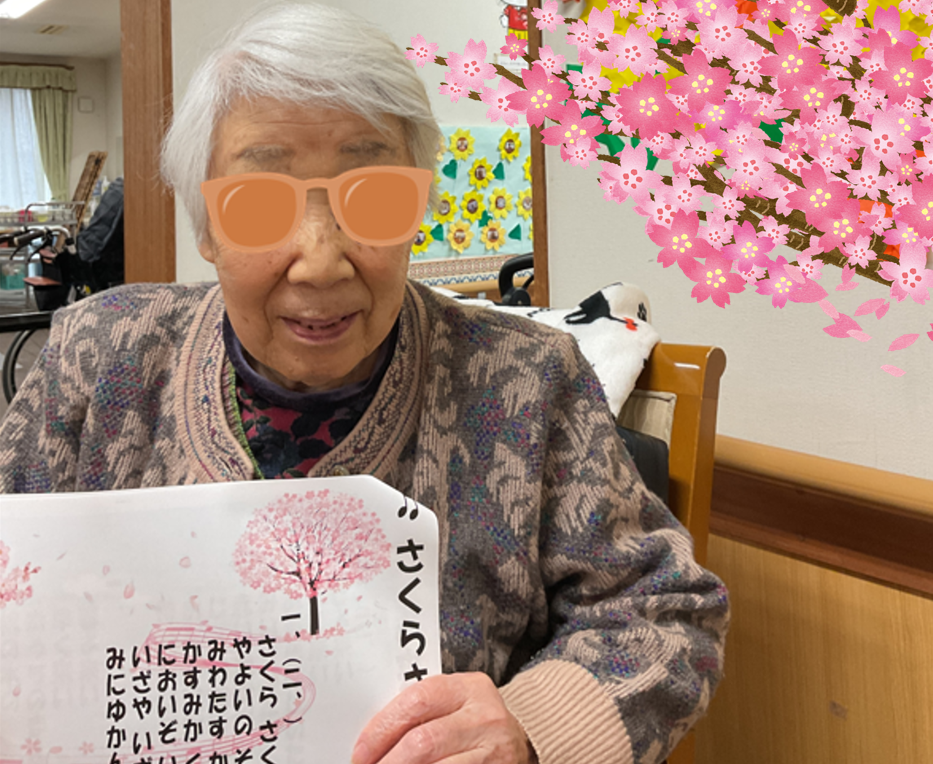 ♫ さくらさ
一、(二、)
さくら さく
やよいのそ
みわたすか
かすみかく
においぞい
いざやいざ
みにゆかん